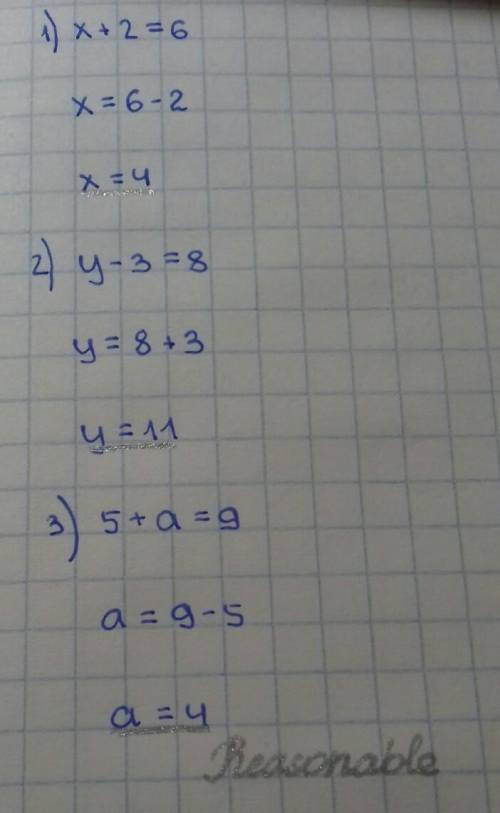 1) x + 2 = 6
x = 6 - 2
x = 4
2) y - 3 = 8
y = 8 + 3
y = 11
3) 5 + a = 9
a = 9 - 5
a = 4
Reasonable